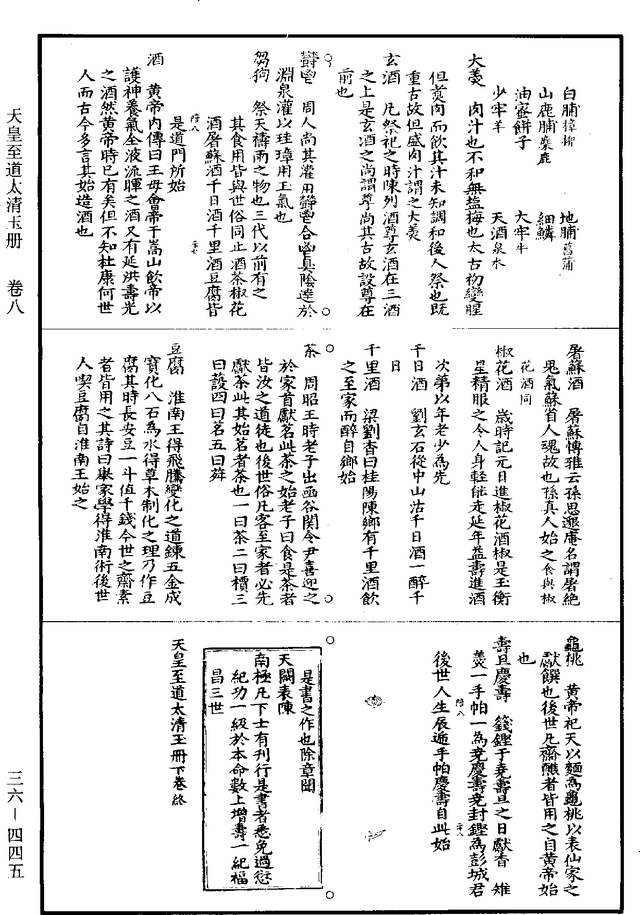 天皇至道太清玉册　卷八
白脯樟柳　地脯菖蒲
山鹿脯麋鹿　細鱗
油蜜餅子　大牢牛
少牢羊　天酒泉水
大羹　肉汁也不和無塩梅也太古初變腥
但煑肉而飲其汁未知調和後人祭也既
重古故但盛肉汁謂之大羹
玄酒　凡祭祀之時陳列酒尊玄酒在三酒
之上是玄酒之尚謂尊尚其古故設尊在
前也
鬱鬯　周人尚其灌用鬱鬯合鬯臭陰達於
淵泉灌以珪璋用玉氣也
芻狗　祭天禱雨之物也三代以前有之
其食用皆與世俗同止酒茶椒花
酒屠蘇酒千日酒千里酒豆腐皆
是道門所始
酒　黄帝内傳曰王母會帝于嵩山飲帝以
護神養氣金液流暉之酒又有延洪壽光
之酒然黄帝時已有矣但不知杜康何世
人而古今多言其始造酒也
屠蘇酒　屠蘇博雅云孫思邈庵名謂屠絶
鬼氣蘇首人魂故也孫真人始之食與椒
花酒同
椒花酒　歲時記元日進椒花酒椒是玉衡
星精服之令人身輕能走延年益壽進酒
次第以年老少為先
千日酒　劉玄石從中山沽千日酒一醉千
日
千里酒　梁劉杳曰桂陽陳鄉有千里酒飲
之至家而醉自鄉始
茶　周昭王時老子出函谷関令尹喜迎之
於家首獻茗此茶之始老子曰食是茶者
皆汝之道徒也後世俗凡客至家者必先
獻茶此其始茗者茶也一曰茶二曰檟三
曰蔎四曰茗五曰荈
豆腐　淮南王得飛騰變化之道鍊五金成
寳化八石為水得草木制化之理乃作豆
腐其時長安豆一斗值千錢今世之齋素
者皆用之其詩曰舉家學得淮南術後世
人喫豆腐自淮南王始之
龜桃　黄帝祀天以麵為龜桃以表仙家之
獻饌也後世凡齋醮者皆用之自黄帝始
也
壽旦慶壽　籛鏗于堯壽旦之日獻香雉
羮一手帕一為堯慶壽堯封鏗為彭城君
後世人生辰遞手帕慶壽自此始
是書之作也除章聞
天闕表陳
南極凡下士有刊行是書者悉免過愆
紀功一級於本命數上增壽一紀福
昌三世
天皇至道太清玉册下卷終
三六—四四五